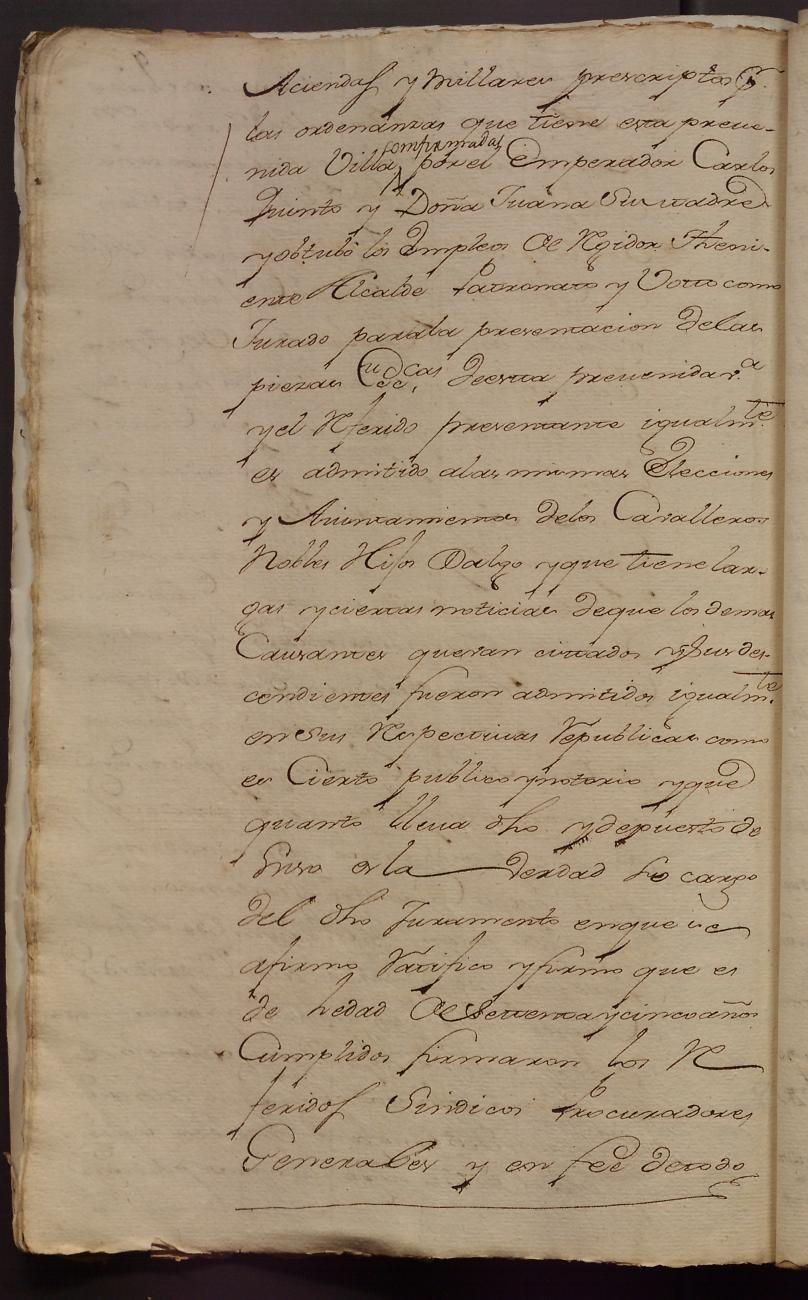 Aciendas y Millares prescriptos p.
las ordenanzas que tiene esta preue-
nida Villa confirmadas por el Emperador Carlos
Quinto y Doña Juana Su madre
y obtubo los Empleos de Rexidor Theni-
ente Alcalde Patronato y Votto como
Jurado para la presentacion de las
piezas Ecc.cas de esta preuenida v.a
y el Referido presentante igualm.te
es admitido a las mismas Elecciones
y Aiuntamientos de los Caualleros
Nobles Hijos Dalgo y que tiene lar-
gas y ciertas noticias de que los demas
Causantes que uan cittados y Sus des-
cendientes fueron admitidos igualm.te
en Sus Respectiuas Republicas como
es Cierto publico y notorio y que
quanto lleua dho y depuesto de
Suso es la Verdad So cargo
del dho Juramento en que se
afirmo Ratifico y firmo que es
de hedad de Settenta y cinco años
Cumplidos firmaron los Re
feridos Sindicos Procuradores
Generales y en fee de todo